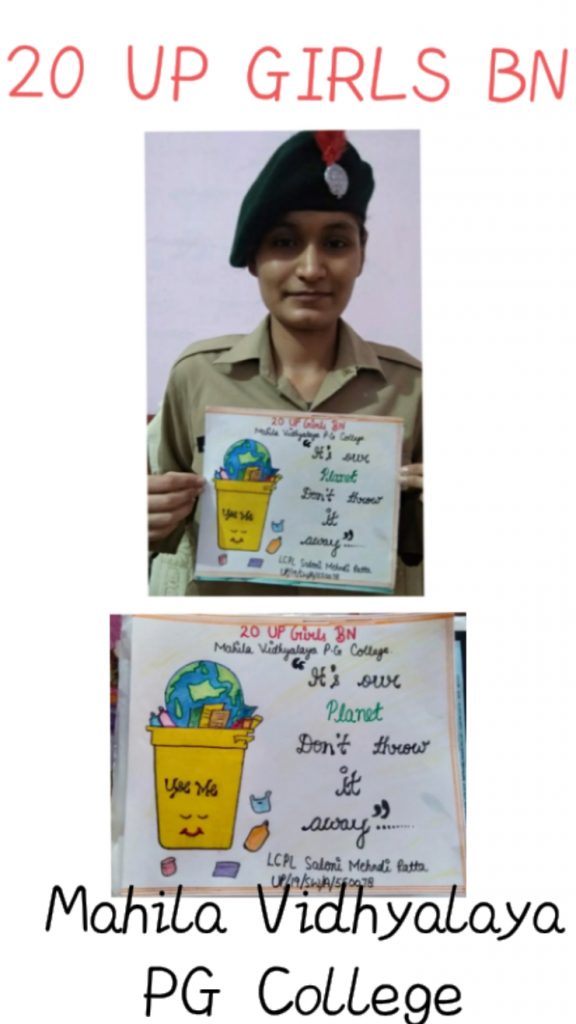 20 UP GIRLS BN
20 UP Girls BN
Mahila Vidhyalaya P.G College.
"It's our
Planet
Don't throw
it
away".....
Yes Me
LCPL Saloni Mehndi Ratta
20 UP Girls BN
Mahila Vidhyalaya P.G College.
"It's our
Planet
Don't throw
it
away"........
Yes Me
LCPL Saloni Mehndi Ratta
Mahila Vidhyalaya
PG College